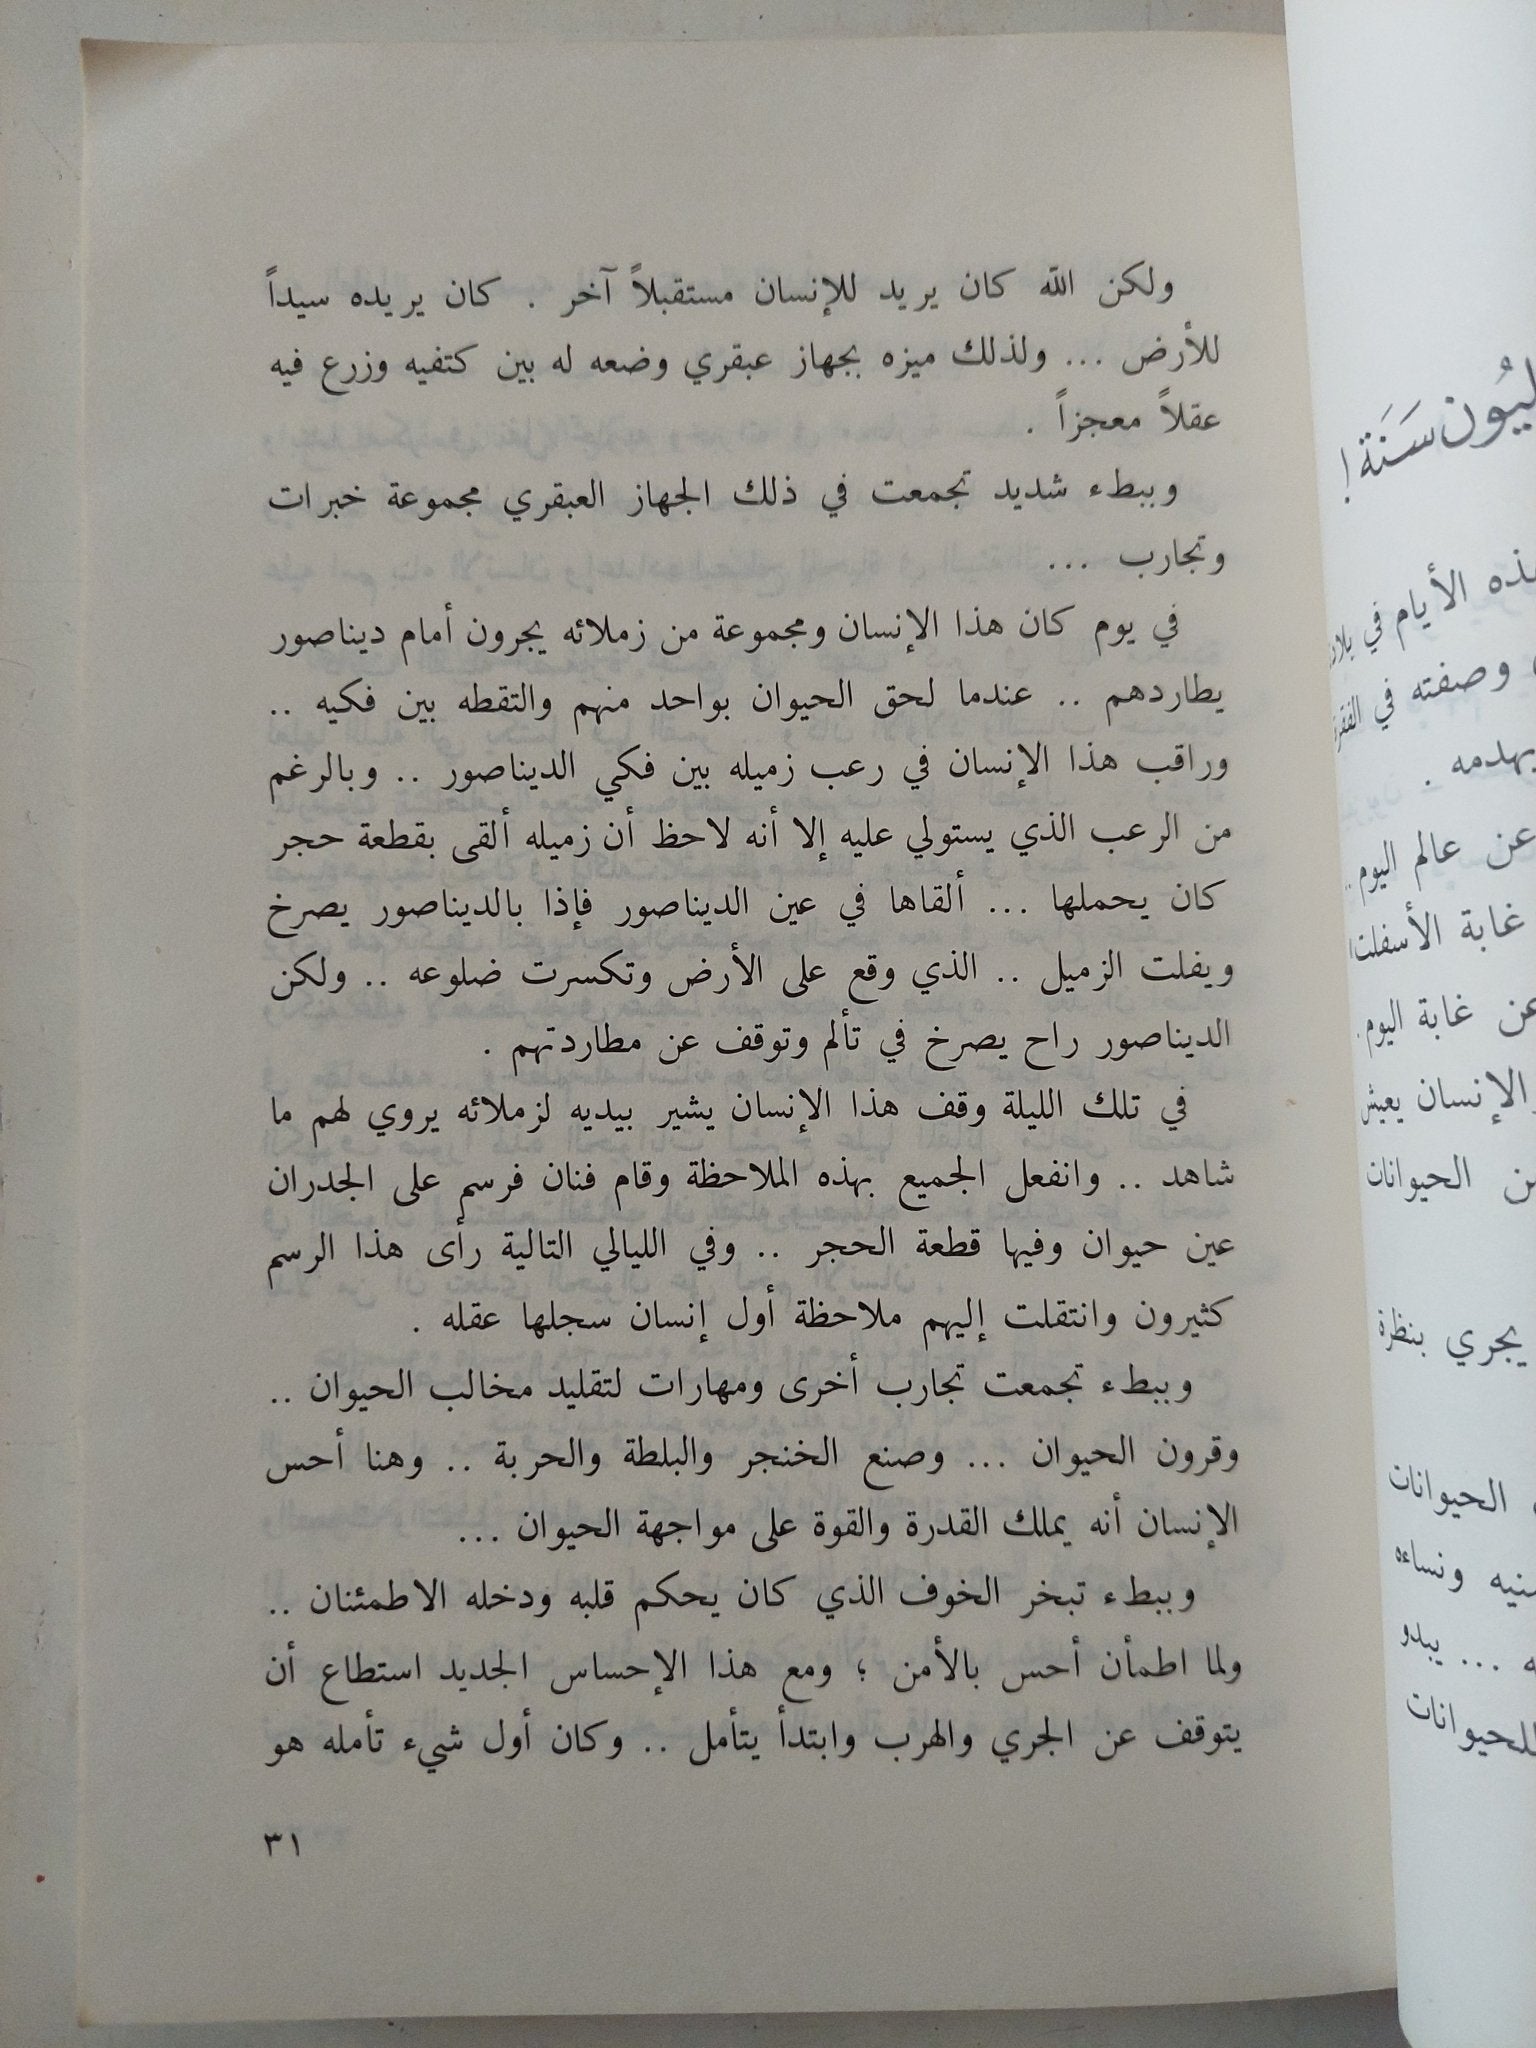 ولكن الله كان يريد للإنسان مستقبلاً آخر . كان يريده سيداً
للأرض ... ولذلك ميزه بجهاز عبقري وضعه له بين كتفيه وزرع فيه
عقلاً معجزاً .
وببطء شديد تجمعت في ذلك الجهاز العبقري مجموعة خبرات
وتجارب ...
في يوم كان هذا الإنسان ومجموعة من زملائه يجرون أمام ديناصور
يطاردهم .. عندما لحق الحيوان بواحد منهم والتقطه بين فكيه ..
وراقب هذا الإنسان في رعب زميله بين فكي الديناصور .. وبالرغم
من الرعب الذي يستولي عليه إلا أنه لاحظ أن زميله ألقى بقطعة حجر
كان يحملها ... ألقاها في عين الديناصور فإذا بالديناصور يصرخ
ويفلت الزميل .. الذي وقع على الأرض وتكسرت ضلوعه .. ولكن
الديناصور راح يصرخ في تألم وتوقف عن مطاردتهم .
في تلك الليلة وقف هذا الإنسان يشير بيديه لزملائه يروي لهم ما
شاهد .. وانفعل الجميع بهذه الملاحظة وقام فنان فرسم على الجدران
عين حيوان وفيها قطعة الحجر .. وفي الليالي التالية رأى هذا الرسم
كثيرون وانتقلت إليهم ملاحظة أول إنسان سجلها عقله .
وببطء تجمعت تجارب أخرى ومهارات لتقليد مخالب الحيوان ..
وقرون الحيوان ... وصنع الخنجر والبلطة والحربة .. وهنا أحس
الإنسان أنه يملك القدرة والقوة على مواجهة الحيوان ...
وببطء تبخر الخوف الذي كان يحكم قلبه ودخله الاطمئنان ..
ولما اطمأن أحس بالأمن ؛ ومع هذا الإحساس الجديد استطاع أن
يتوقف عن الجري والهرب وابتدأ يتأمل .. وكان أول شيء تأمله هو
٣١
سَنَة !
الأيام في
وصفته في
يهدمه .
عن عالم اليوم ..
غابة الأسفلت
عن غابة اليوم .
والإنسان يعيش
الحيوانات
يجري بنظرة
الحيوانات
ونساءه
... يبدو
للحيوانات